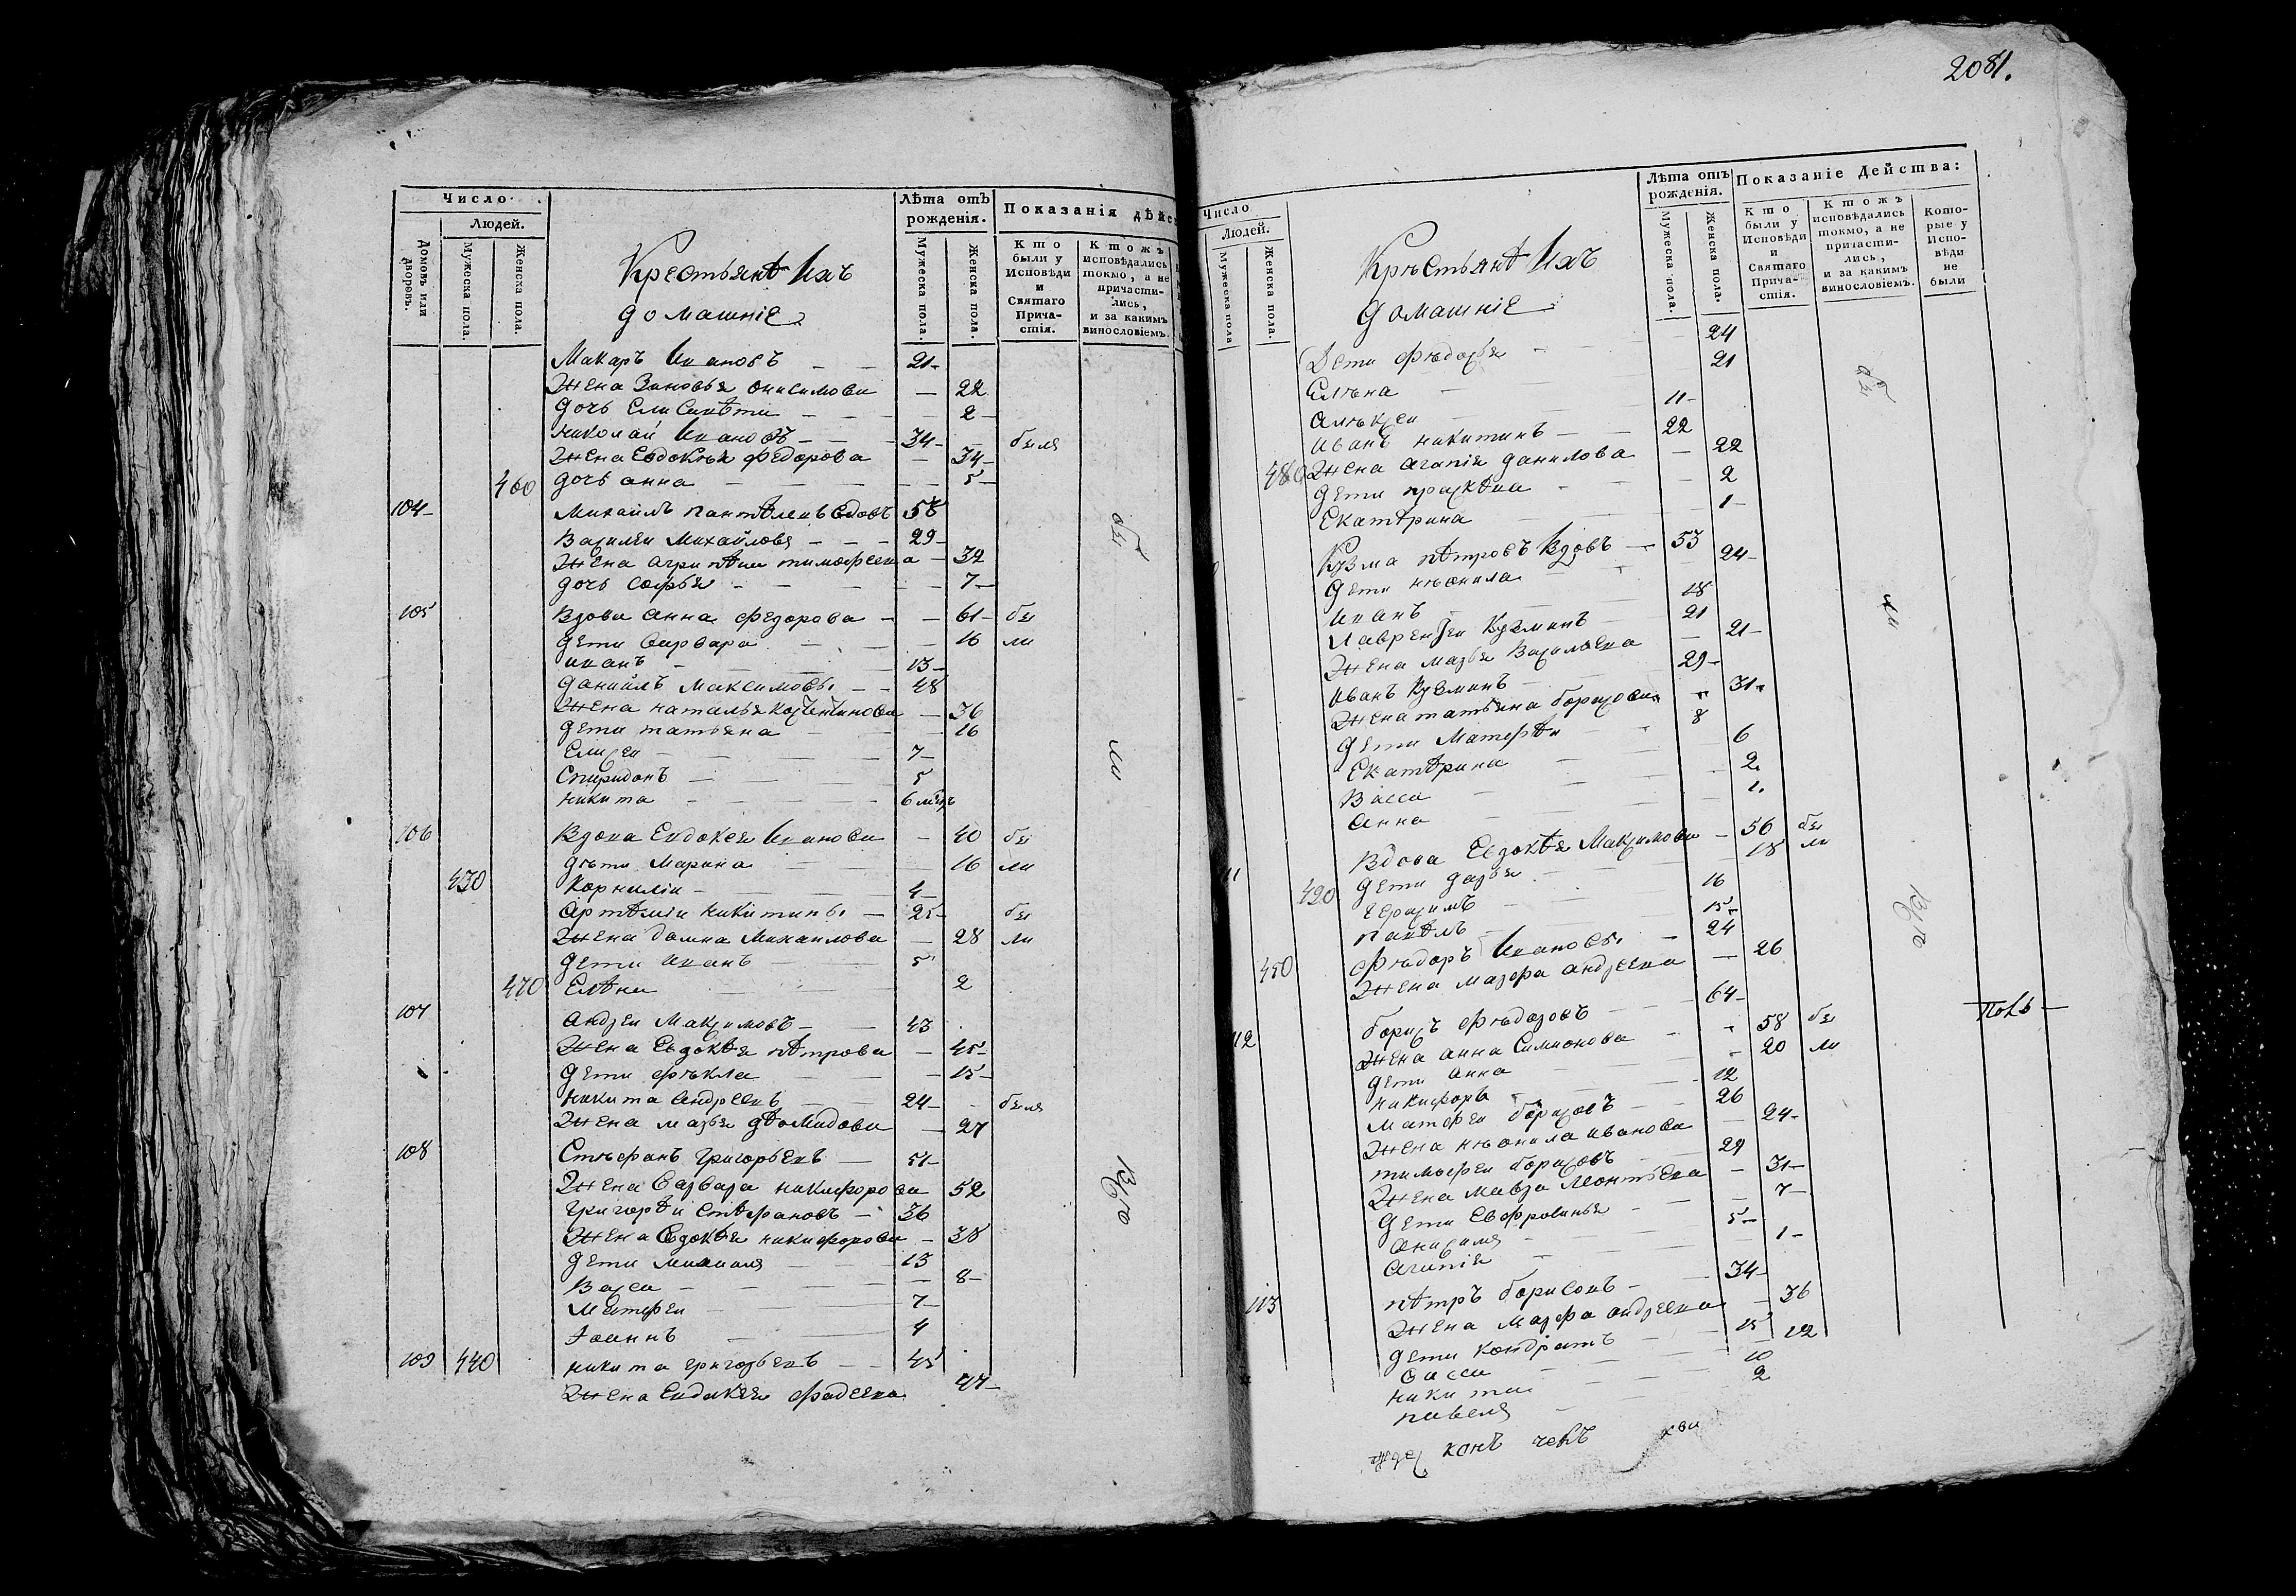 2081.
Число
Людей.
Домовъ или дворовъ.
Мужеска пола.
Женска пола.
Крестьянѣ Ихъ
домашніе
Лѣта отъ рожденія.
Мужеска пола.
Женска пола.
Показанія дѣйс
Кто были у Исповѣди и Святаго Причастія.
Ктожъ исповѣдались токмо, а не причастились, и за какимъ винословіемъ.
Макаръ Ивановъ 21
Жена Зановья Онисимова 22
дочь Елисавѣта 2
Николай Ивановъ 34 былъ
Жена Евдокѣя Федорова 34
460 дочь анна 5
104 Михаилъ Пантѣлевъ вдовъ 58
Василеи Михайловъ 29
Жена Агрипѣна тимофеева 32
дочь софья 7
105 Вдова Анна Федорова 61 бы
дети Варвара 16 ли
иванъ 13
даниилъ Максимовъ 48
Жена наталья Костентинова 36
дети татьяна 16
Елисеи 7
Спиридонъ 5
никита 6 мѣцъ
106 Вдова Евдокея Иванова 40 бы
дѣти Марина 16 ли
430 Корнилiи 4
Артѣмiи Никитинъ 25 бы
Жена домна Михаилова 28 ли
дети иванъ 5
470 Елѣна 2
107 Андреи Максимовъ 43
Жена Евдокѣя пѣтрова 45
дети фѣкла 15
никита Андреевъ 24 былъ
Жена марья дѣомидова 27
108 Стѣфанъ Григорьевъ 51
Жена Варвара никифорова 52
Григорѣи Стѣфановъ 36
Жена Евдокѣя никифорова 38
дети михаила 13
Васса 8
Матфеи 7
Иоаннъ 4
109 440 никита григорьевъ 45
Жена Евдокея фадеева 47
бы
ли
Число
Людей.
Мужеска пола
Женска пола.
Крѣстьянѣ Ихъ
домашніе
Лѣта отъ рожденія.
Мужеска пола.
Женска пола.
Показаніе Действа:
Кто были у Исповѣди и Святаго Причастія.
Ктожъ исповѣдались токмо, а не причастились, и за какимъ винословіемъ.
Которые у Исповѣди не были
Дети фѣдосья 24
Елѣна 21
Алѣксеи 11
Иванъ никитинъ 22
480 Жена агапiя данилова 22
дети праскѣва 2
Екатѣрина 1
Кузма пѣтровъ вдовъ 53
дети нѣонила 24
иванъ 18
Лаврентеи Кузминъ 21
Жена марья Васильева 21
иванъ Кузминъ 29
Жена татьяна борисова 31
дети Матфѣи 8
Екатѣрина 6
Васса 2
Анна 1
Вдова Евдокѣя Максимова 56 бы
дети дарья 18 ли
герасимъ 16
павѣлъ 15
450 фѣдоръ Ивановъ 24
Жена марфа андреева 26
112 борисъ фѣдоровъ 64
Жена анна Симионова 58 бы
дети анна 20 ли
никифоръ 12
матфеи борисовъ 26
Жена нѣонила иванова 24
тимофеи борисовъ 29
Жена мавра Леонтьева 31
дети Евфросинья 7
Онисимъ 5
агапiя 1
113 пѣтръ борисовъ 34
Жена марфа андреева 36
дети кондратъ 15
Васса 12
никита 10
павелъ 2
бы
ли